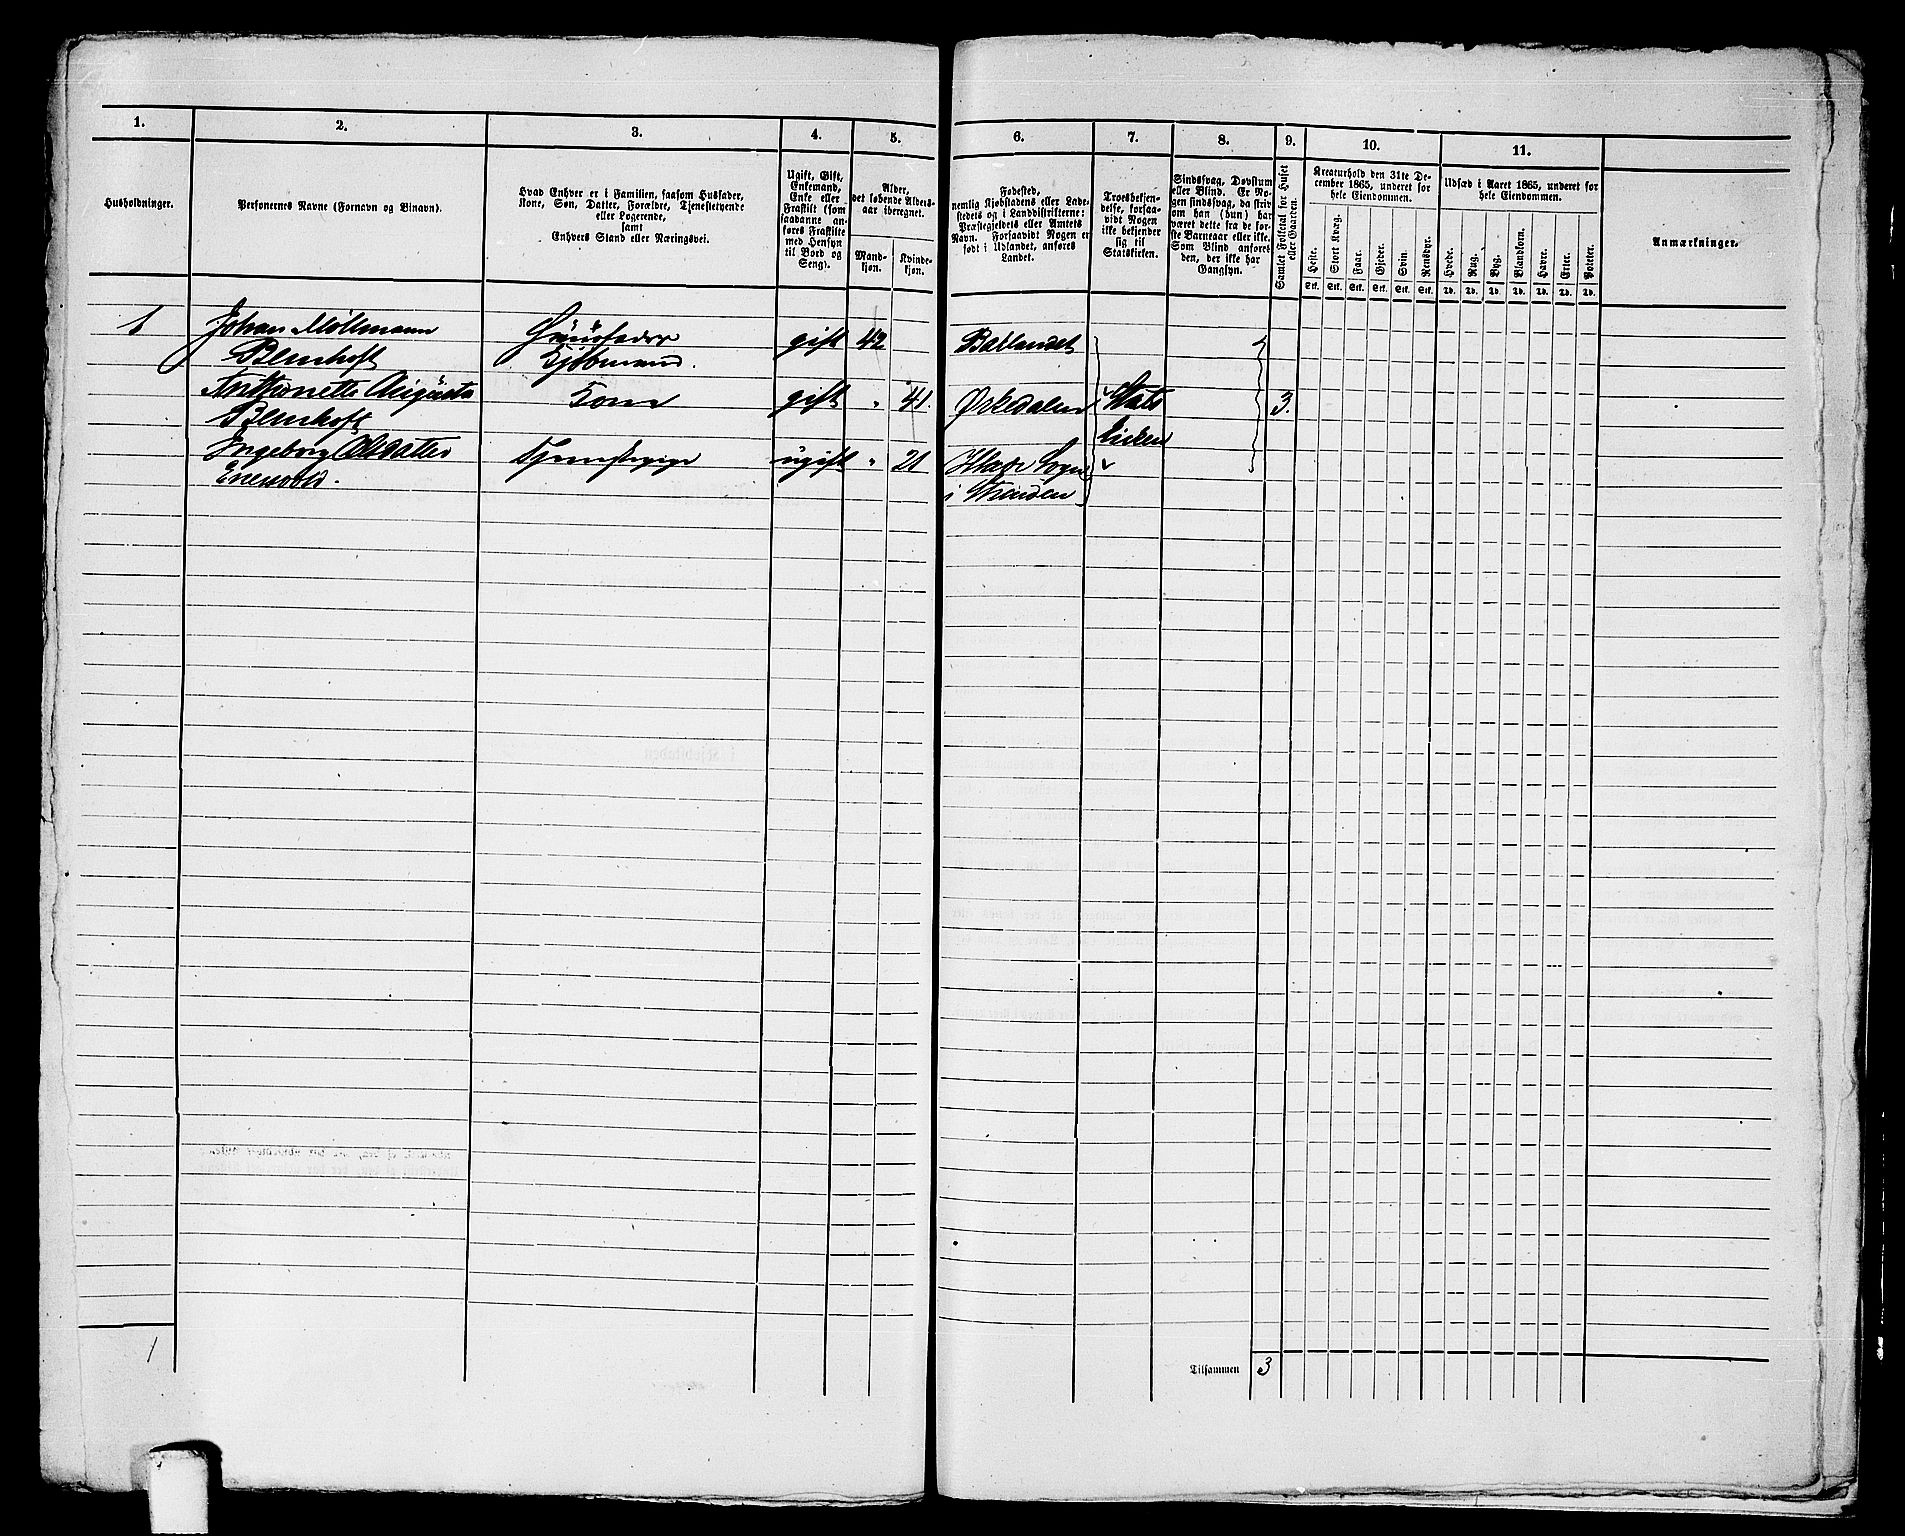 1.
2.
3.
4.
5.
6.
7.
8.
9.
10.
11.
Husholdninger.
Personernes Navne (Fornavn og Binavn).
Hvad Enhver er i Familien, saasom Husfader,
Kone, Søn, Datter, Forældre, Tjenestetyende
eller Logerende,
samt
Enhvers Stand eller Næringsvei.
Ugift, Gift,
Enkemand,
Enke eller
Fraskilt (som
saadanne an-
føres Fraskilte
med Hensyn
til Bord og
Seng).
Alder,
det løbende Alders-
aar iberegnet.
Mand-
kjøn.
Kvinde-
kjøn.
Fødested,
nemlig Kjøbstadens eller Lade-
stedets og i Landdistrikterne:
Præstegjeldets eller Amtets
Navn. Forsaavidt Nogen er
født i Udlandet, anføres
Landet.
Troesbekjen-
delse, forsaa-
vidt Nogen
ikke bekjender
sig til
Statskirken.
Sindssvag, Døvstum
eller Blind. Er No-
gen sindssvag, da skriv
om han (hun) har
været dette fra de før-
ste Barneaar eller ikke.
Som Blind anføres
den, der ikke har
Gangsyn.
Samlet Folketal for Huset
eller Gaarden.
Kreaturhold den 31te De-
cember 1865, underet for
hele Eiendommen.
Heste.
Stort Kvæg.
Faar.
Gjeder.
Svin.
Rensdyr.
Stk. Stk. Stk. Stk. Stk. Stk.
Udsæd i Aaret 1865, underet for
hele Eiendommen.
Hvede.
Rug.
Byg.
Blandkorn.
Havre.
Erter.
Poteter.
Td. Td. Td. Td. Td. Td. Td.
Anmærkninger.
1 Johan Möllmann Huusfader gift 42 Ballandet
Blemhoft Kjøbmand.
Anthonette Augusta Kone gift " 41. Ørkedalen Stats 3.
Blemhoft kirken
Ingeborg Olsdatter Tjenestepige ugift " 21 Sogn
Enesvold. i Strinden
1
Tilsammen 3